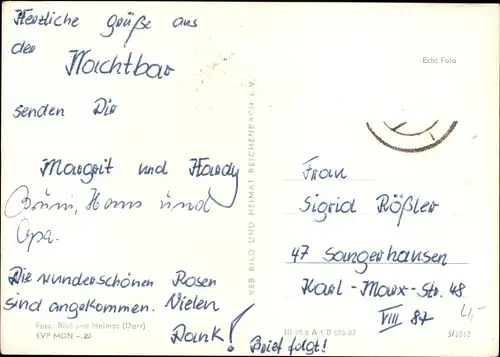 Herzliche Grüße aus
der
Nachtbar
senden Dir
Margrit und Hardy
Hans und
Opa.
Die wunderschönen Rosen
sind angekommen. Vielen
Dank!
Brief folgt!
Foto: Bild und Heimat (Darr)
EVP MDN –,20
VEB BILD UND HEIMAT REICHENBACH i. V.
Echt Foto
Frau
Sigrid Rößler
47 Sangerhausen
Karl-Marx-Str. 48
VIII 87
4,-
3/1012